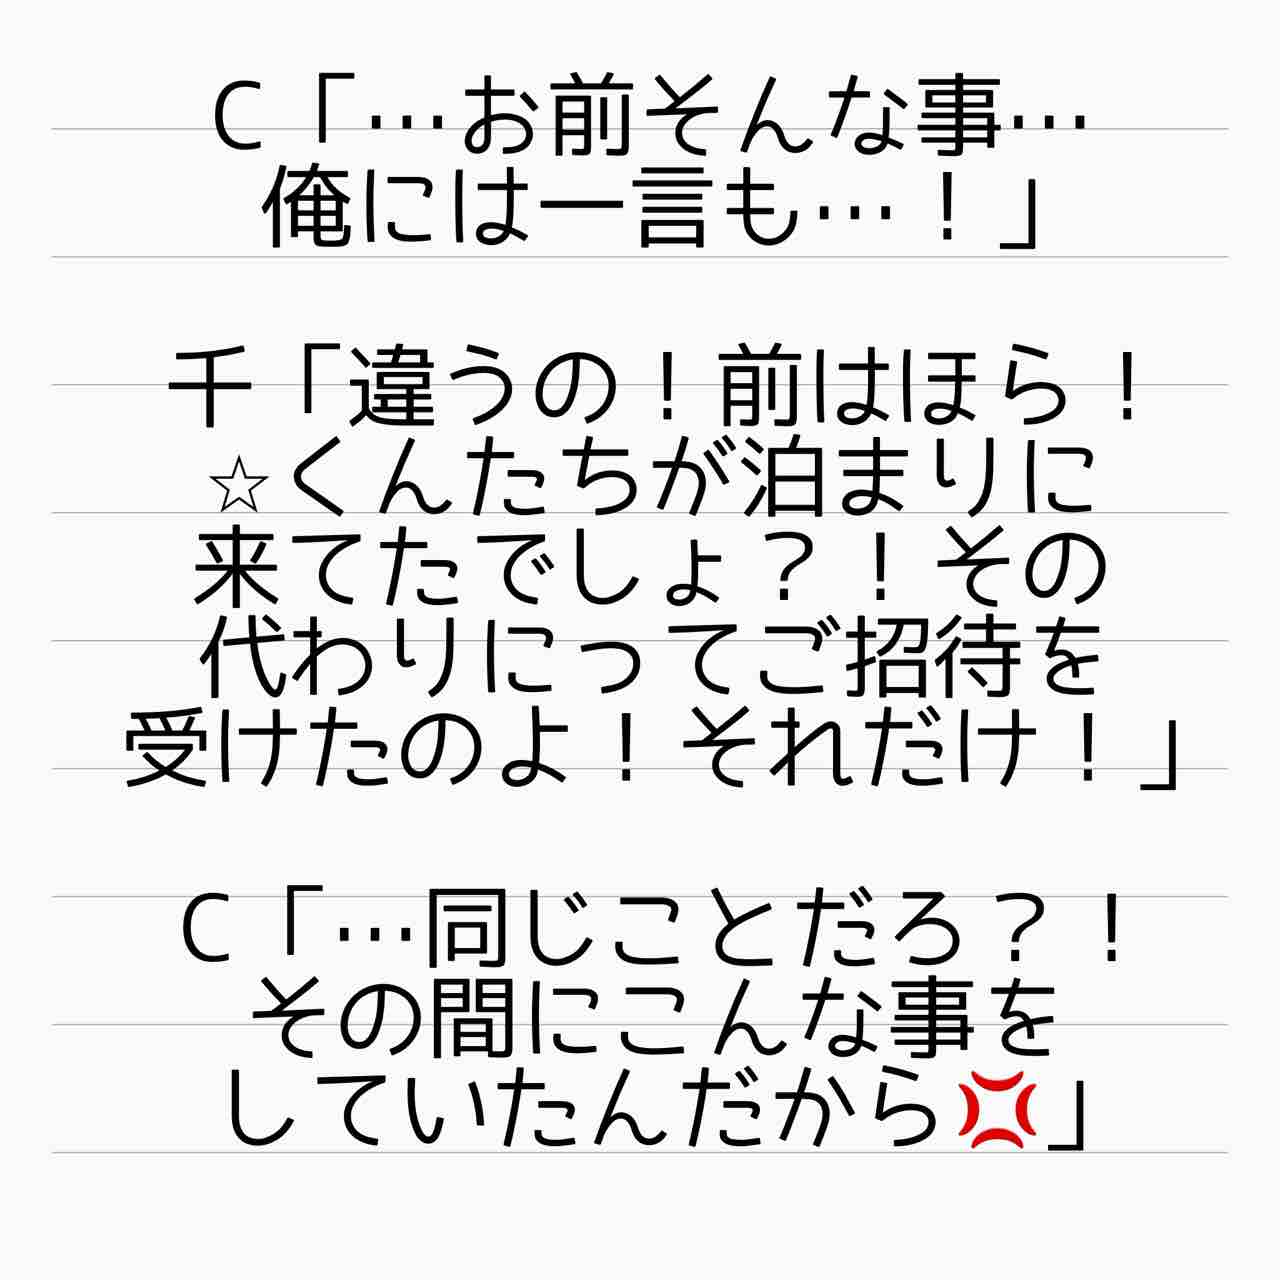 C「…お前そんな事…
俺には一言も…！」
千「違うの！前はほら！
☆くんたちが泊まりに
来てたでしょ？！その
代わりにってご招待を
受けたのよ！それだけ！」
C「…同じことだろ？！
その間にこんな事を
していたんだから💢」